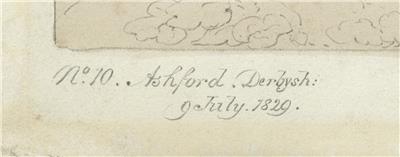 No. 10. Ashford. Derbysh:
9 July. 1829.